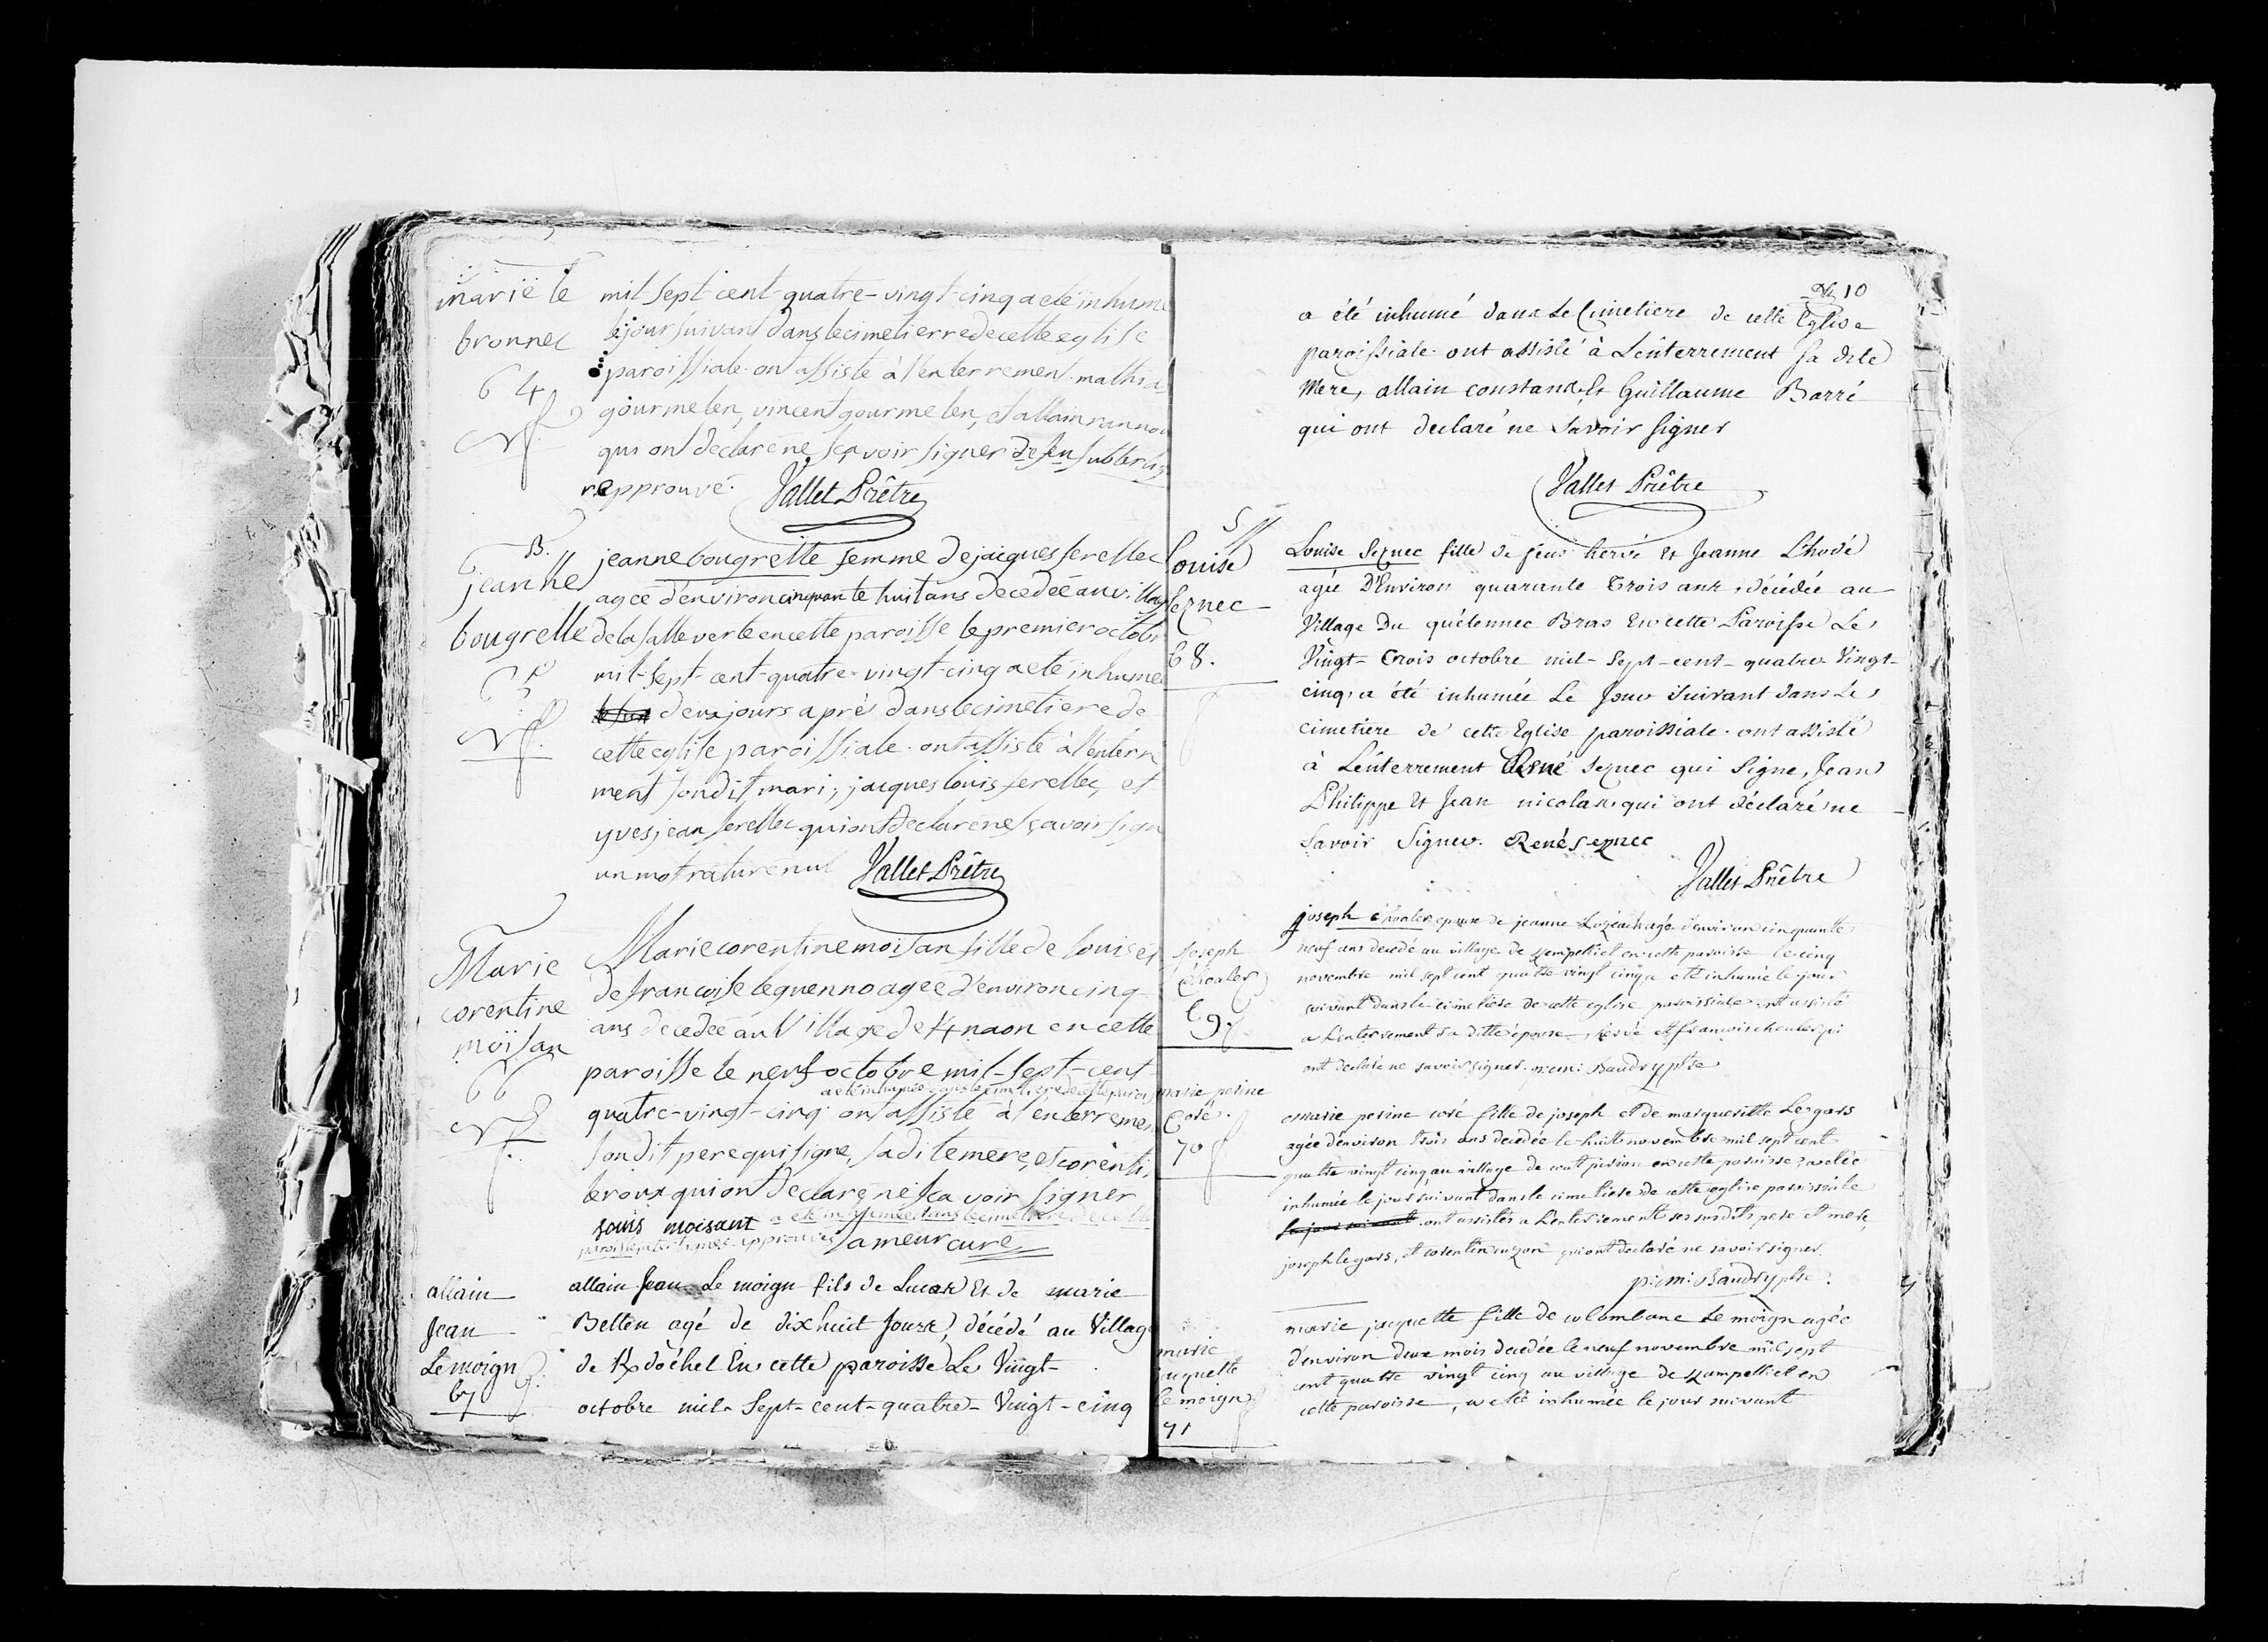 marie le
bronnec
64
mil-sept-cent-quatre-vingt-cinq a eté inhumé
le jour suivant dans le cimetierre de cette eglise
paroissiale. on assisté à l'enterrement mathi
gourmelen, vincent gourmelen, et allain rannou
qui on declaré ne sçavoir signer
approuvé. Vallet Prêtre
B.
jeanne
bougrelle
jeanne bougrelle femme de jacques ferellec
agée d'environ cinquante huit ans decedée au village
de la salle verte en cette paroisse le premier octobr
mil-sept-cent-quatre-vingt-cinq a eté inhumé
deux jours aprè dans le cimetiere de
cette eglise paroissiale. ont assisté à l'enterre
ment son dit mari, jacques louis ferellec, et
yves jean ferellec qui ont declaré ne sçavoir sign
un mot raturé nul Vallet Prêtre
Marie
corentine
moïsan
66
Marie corentine moisan fille de louis et
de francoise le guenno agée d'environ cinq
ans decedée au Village de en cette
paroisse le neuf octobre mil-sept-cent-
a eté inhumée dans le cimetiere de cette paroi
quatre-vingt-cinq. on assisté à l'enterremen
son dit pere qui signe, sa dite mere, et corenti
leroux qui on declaré ne sça voir signer
louis moisant a eté inhumée dans le cimetiere de cette
paroisse approuvés lameur curé
allain
Jean
Le moign
67
allain Jean Le moign fils de Lucas Et de marie
Bellen agé de dix huit Jours, décédé au Village
de En cette paroisse Le Vingt-
octobre mil-Sept-cent-quatre-Vingt-cinq
10
a été inhumé dans Le Cimetiere de cette Eglise
paroissiale. ont assisté à L'enterrement sa dite
Mere, allain constans, Et Guillaume Barré
qui ont declaré ne Savoir signer
Vallet Prêtre
Louise
Seznec
68.
Louise Seznec fille de feus hervé Et Jeanne L'hodé
agée D'Environ quarante Trois ans, décédée au
Village Du quélennec Bras En cette Paroisse Le
Vingt-Trois octobre mil-Sept-cent-quatre Vingt-
cinq, a été inhumée Le Jour Suivant dans Le
cimetiere de cette Eglise paroissiale. ont assisté
à L'enterrement René seznec qui Signe, Jean
Philippe Et Jean nicolas qui ont déclaré ne
Savoir Signer. René Seznec
Vallet Prêtre
joseph
69
joseph epoux de jeanne agé d'environ cinquante
neuf ans decedé au village de en cette paroisse le cinq
novembre mil sept cent quatre vingt cinq a eté inhumé le jour
suivant dans le cimetiere de cette eglise paroissiale ont assisté
a l'enterrement sa ditte épouse, hervé et francois qui
ont declaré ne savoir signer. p: m: Baudry ptre
marie perine
Coré.
70
marie perine coré fille de joseph et de margueritte Le gars
agée d'environ trois ans decedée le huit novembre mil sept cent
quatre vingt cinq au village de en cette paroisse, a eté
inhumée le jour suivant dans le cimetiere de cette eglise paroissiale
le jour suivant. ont assistés a l'enterrement ses susdits pere et mere,
joseph le gars, et corentin qui ont declaré ne savoir signer.
p: m: Baudry ptre.
marie
jaquette
le moign
71
marie jacquette fille de colombane Le moign agée
d'environ deux mois decedée le neuf novembre mil sept
cent quatre vingt cinq au village de en
cette paroisse, a eté inhumée le jour suivant